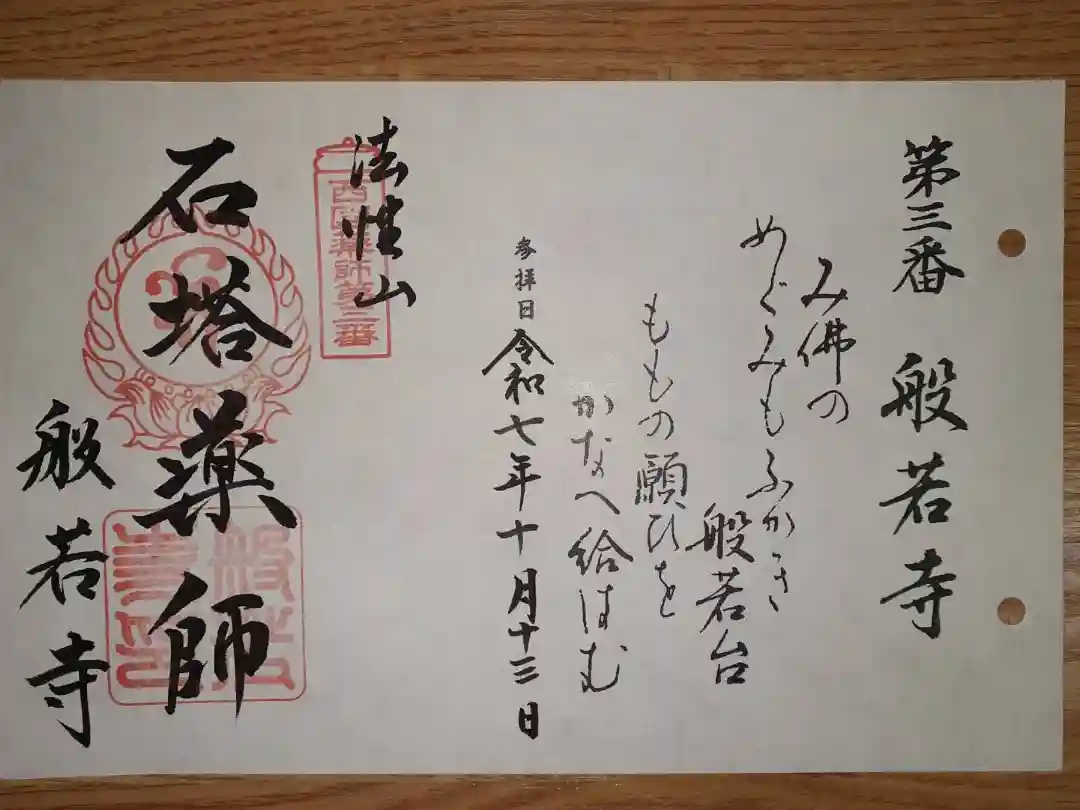 第三番 般若寺
み佛の
めぐみもふかき
般若台
ももの願ひを
かなへ給はむ
参拝日 令和七年十月十三日
法性山
西国薬師第三番
石塔薬師
般若寺